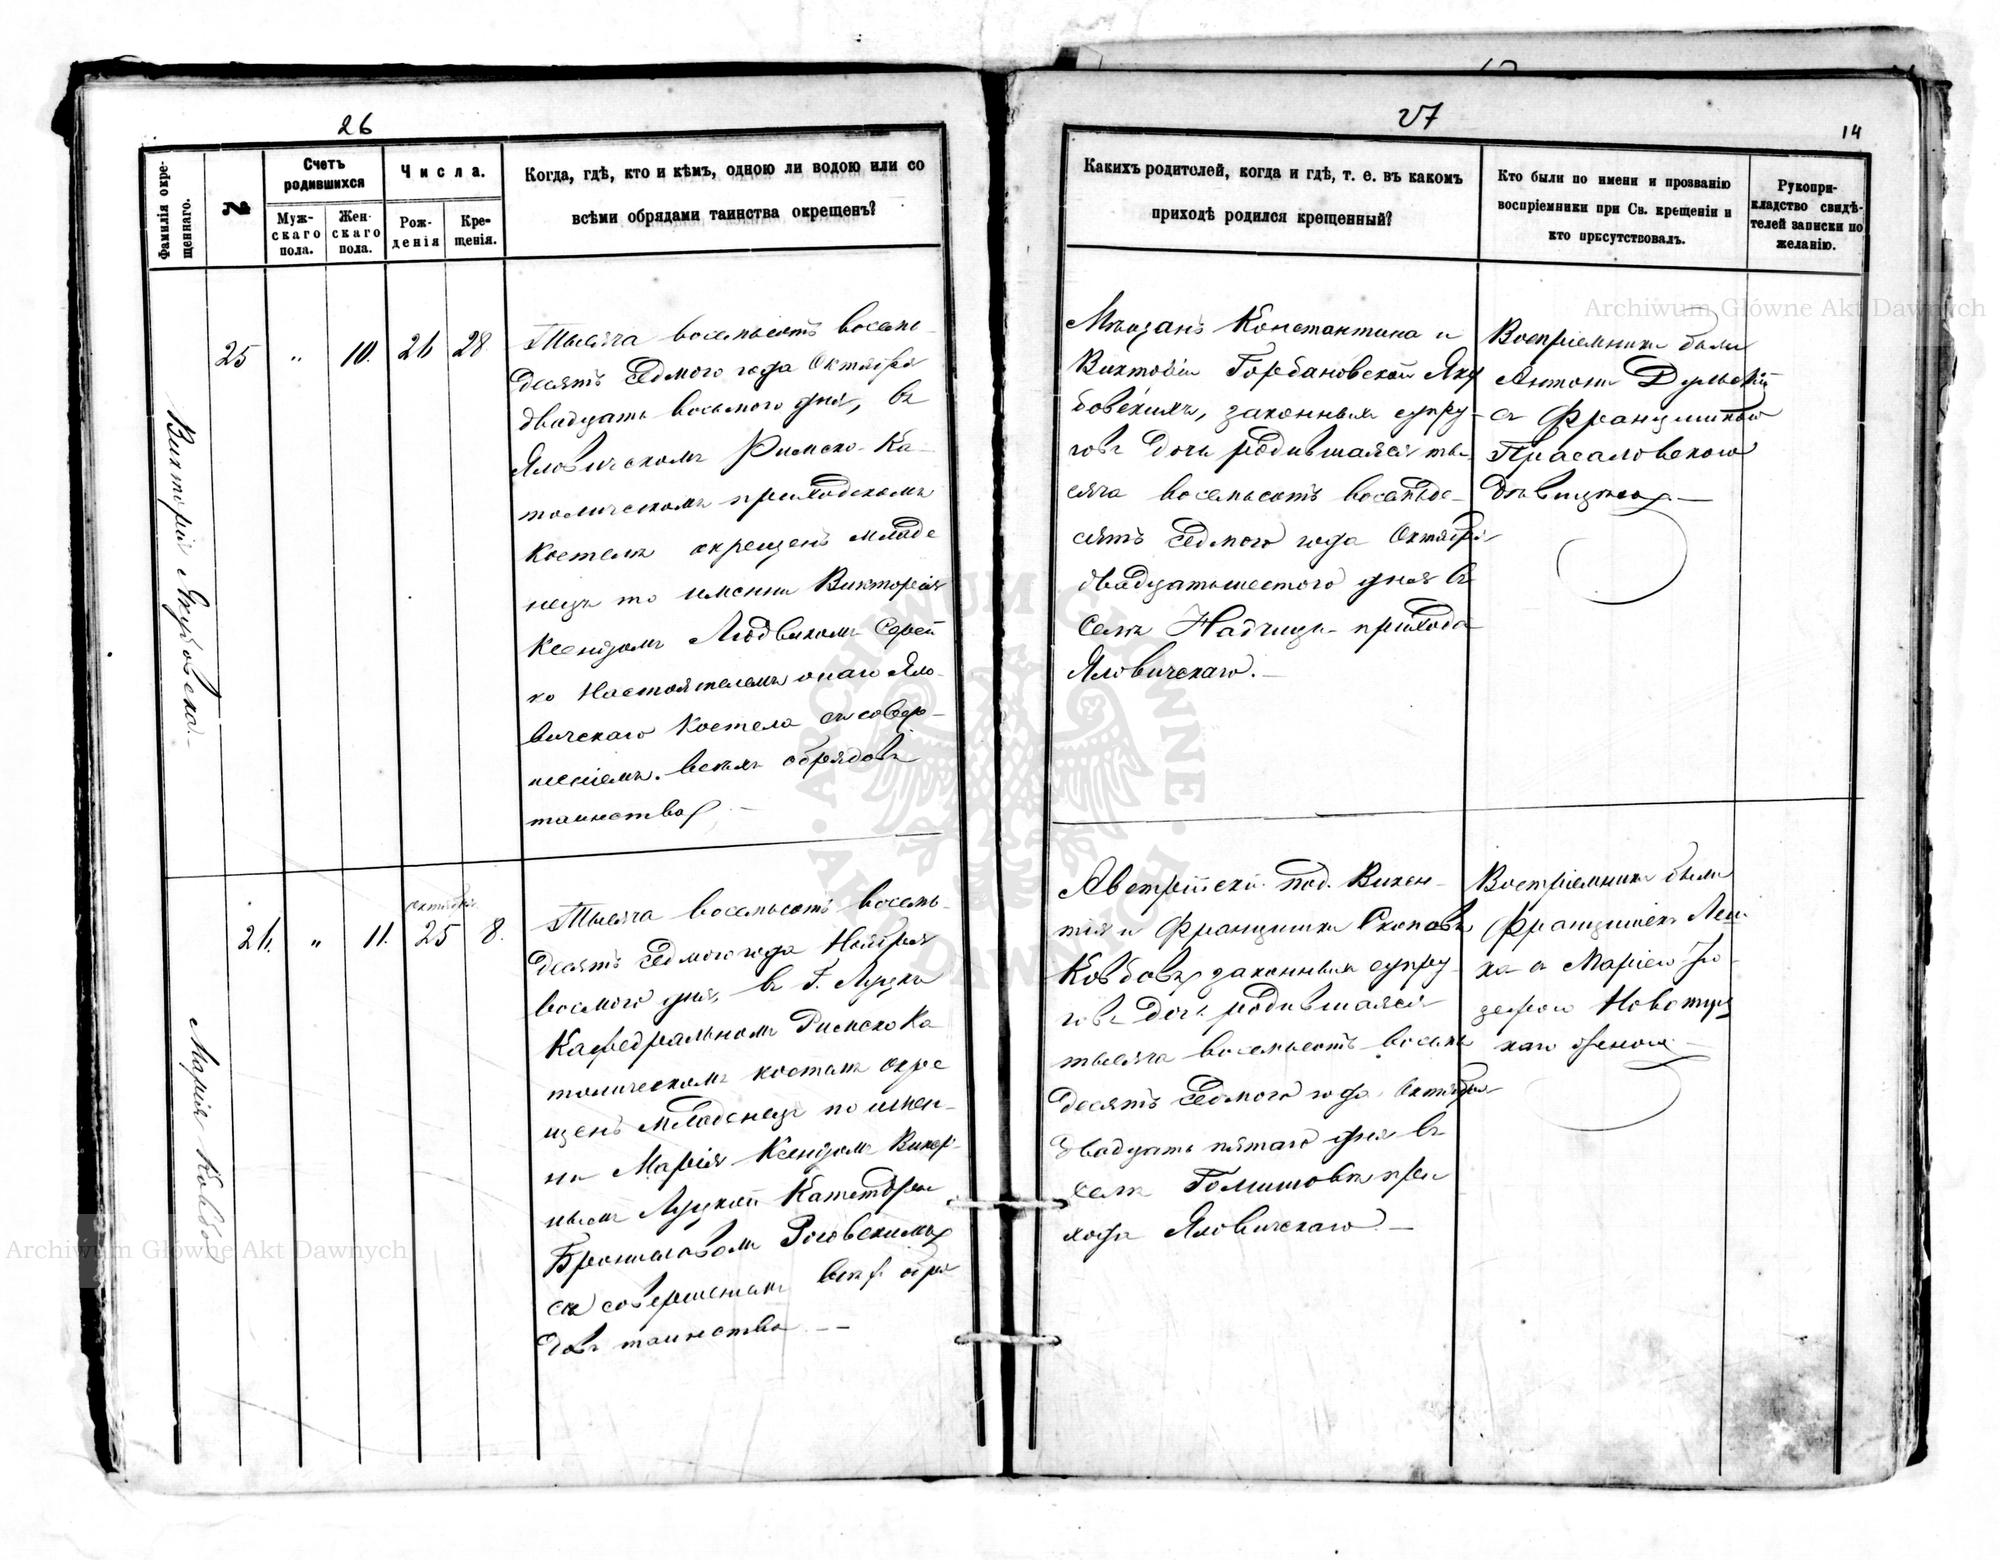 26
Фамилія окре-
щеннаго.
№
Счетъ
родившихся
Муж-
скаго
пола.
Жен-
скаго
пола.
Числа.
Рож-
денія
Кре-
щенія.
Когда, гдѣ, кто и кѣмъ, одною ли водою или со
всѣми обрядами таинства окрещенъ?
Викторія Якубовска.
25 " 10. 26 28
Тысяча восемьсотъ восемь-
десятъ седмого года Октября
двадцать восьмого дня, въ
Яловичскомъ Римско-Ка-
толическомъ приходскомъ
костелѣ окрещенъ младе
нецъ по имени Викторія
Ксендзомъ Людвикомъ Серей
ко Настоятелемъ онаго Яло-
вичскаго Костела съ совер-
шеніемъ всѣхъ обрядовъ
таинства
Марія Ковбо
26. " 11. Октября 25 8.
Тысяча восемьсотъ восемь-
десятъ седмого года Ноября
восмого дня, въ г. Луцкѣ
Кафедральномъ Римско Ка
толическомъ костелѣ окре
щенъ младенецъ по имен-
ни Марія Ксендзомъ
нымъ Луцкой
Брониславомъ
съ совершеніемъ всѣхъ обря
довъ таинства
27
14
Какихъ родителей, когда и гдѣ, т. е. въ какомъ
приходѣ родился крещенный?
Кто были по имени и прозванію
воспріемники при Св. крещеніи и
кто присутствовалъ.
Рукопри-
кладство свидѣ-
телей записки по
желанію.
Мѣщанъ Константина и
Викторіи Горбановской Яку
бовскихъ, законныхъ супру-
говъ дочь родившаяся ты-
сяча восемьсотъ восемьде-
сятъ седмого года Октября
двадцатьшестого дня въ
селѣ Надчицы прихода
Яловичскаго.
Воспріемники были
Антони Дульскій
съ Францишкою
Прасаловскою
дѣвицею
Австрійскій под. Викен-
тія и Францишки Скоповъ
Ковбовъ законныхъ супру-
говъ дочь родившаяся
тысяча восемьсотъ восемь
десятъ седмого года Октября
двадцать пятаго дня въ
селѣ при
хода Яловичскаго
Воспріемники были
Францишекъ Леш-
ка съ Маріею Iо-
зефою
каго женою
Archiwum Główne Akt Dawnych
Archiwum Główne Akt Dawnych
ARCHIWUM GŁÓWNE
AKT DAWNYCH